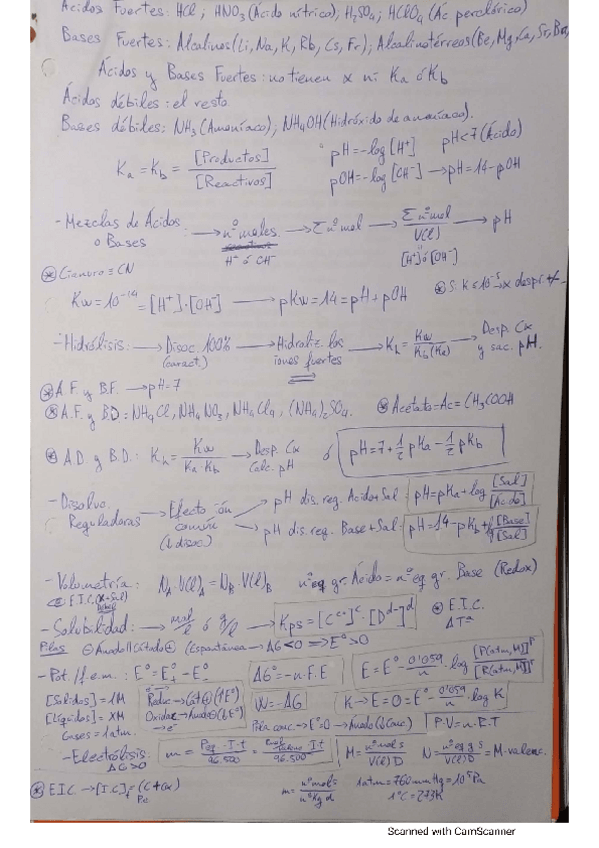 Ácidos Fuertes: HCl ; HNO3 (Ácido nítrico); H2SO4; HClO4 (Ac perclórico)
Bases Fuertes: Alcalinos (Li, Na, K, Rb, Cs, Fr); Alcalinotérreos (Be, Mg, Ca, Sr, Ba,
Ácidos y Bases Fuertes: no tienen α ni Ka ó Kb
Ácidos débiles: el resto
Bases débiles: NH3 (Amoníaco); NH4OH (Hidróxido de amoníaco).
Ka = Kb = [Productos] / [Reactivos]
pH = -log [H+] pH < 7 (Ácido)
pOH = -log [OH-] → pH = 14 - pOH
- Mezclas de Ácidos o Bases → nº moles H+ ó OH- → Σ nº mol → Σ nº mol / V(l) → pH
[H+] ó [OH-]
* Cianuro ≡ CN
Kw = 10^-14 = [H+]·[OH-] → pKw = 14 = pH + pOH
* Si K ≤ 10^-5 → x despr. +/-
- Hidrólisis: → Disoc. 100% (caract.) → Hidroliz. los iones fuertes → Kh = Kw / Kb (Ka) → Desp. Cx y sac. pH.
* A.F. y B.F. → pH = 7
* A.F. y B.D = NH4Cl, NH4NO3, NH4Cl4, (NH4)2SO4. * Acetato = Ac = CH3COOH
* A.D. y B.D.: Kh = Kw / Ka Kb → Desp. Cx Calc. pH ó pH = 7 + 1/2 pKa - 1/2 pKb
- Disolu. Reguladoras → Efecto ión común (↓ disoc)
→ pH dis. reg. Acido + Sal: pH = pKa + log [Sal] / [Ácido]
→ pH dis. reg. Base + Sal: pH = 14 - pKb + lg [Base] / [Sal]
- Volumetría: NA · V(l)A = NB · V(l)B nº eq gr. Ácido = nº eq gr. Base (Redox)
- Solubilidad: → mol/l ó g/l → Kps = [C^c+]^c · [D^d-]^d * E.I.C.
ΔTª
Pilas ⊖ Ánodo || Cátodo ⊕ (Espontánea → ΔG < 0 ⇒ E° > 0
- Pot. / f.e.m.: E° = E°+ - E°- ΔG° = -n·F·E E = E° - 0'059/n · log [P(atm, M)]^p / [R(atm, M)]^r
[Sólidos] = 1M Reduc → Cát ⊕ (↑E°) W = -ΔG K → E = 0 = E° - 0'059/n · log K
[Líquidos] = XM Oxidac → Ánodo ⊖ (↓E°)
Gases = 1 atm. Pila conc. → E° = 0 → Ánodo (↓ Conc) P·V = n·R·T
- Electrólisis: ΔG > 0 m = Peq · I · t / 96.500 = I · t / 96.500 M = nº mols / V(l) D N = nº eq g s / V(l) D = M·valenc.
* E.I.C → [I.C]f = (C + Cx) m = nº mols / nº Kg d 1 atm = 760 mmHg = 10^5 Pa
1°C = 273K
Scanned with CamScanner